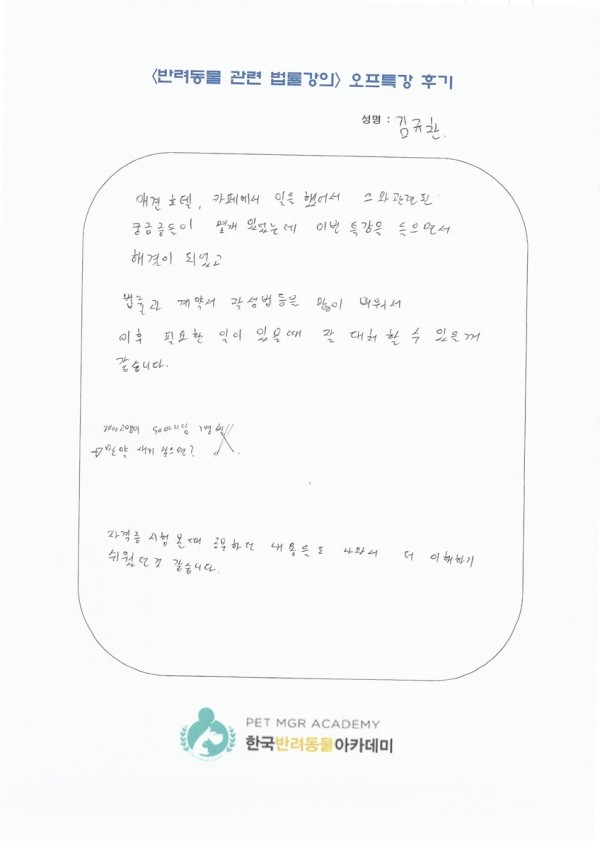 <반려동물 관련 법률강의> 오프특강 후기
성명 : 김규환.
애견 호텔, 카페에서 일을 했어서 그와관련된
궁금증들이 몇개 있었는데 이번 특강을 들으면서
해결이 되었고
법률과 계약서 작성법등을 많이 배워서
이후 필요한 일이 있을때 잘 대처 할 수 있을꺼
같습니다.
50마리당 1명
만약 새끼 낳으면?
자격증 시험 볼때 공부하던 내용들도 나와서 더 이해하기
쉬웠던것 같습니다.
PET MGR ACADEMY
한국반려동물아카데미